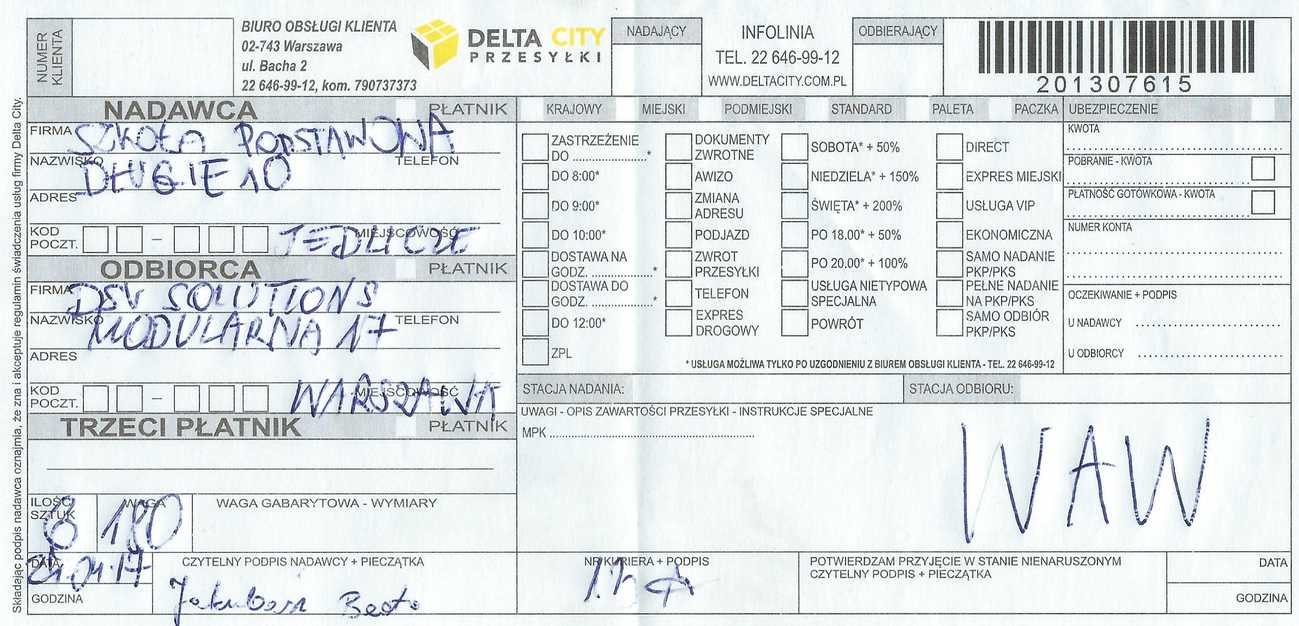 NUMER KLIENTA
BIURO OBSŁUGI KLIENTA
02-743 Warszawa
ul. Bacha 2
22 646-99-12, kom. 790737373
DELTA CITY
PRZESYŁKI
NADAJĄCY
INFOLINIA
TEL. 22 646-99-12
WWW.DELTACITY.COM.PL
ODBIERAJĄCY
201307615
Składając podpis nadawca oznajmia, że zna i akceptuje regulamin świadczenia usług firmy Delta City.
NADAWCA PŁATNIK
FIRMA SZKOŁA PODSTAWOWA
NAZWISKO TELEFON
DŁUGIE 10
ADRES
KOD POCZT. – MIEJSCOWOŚĆ JEDLICZE
ODBIORCA PŁATNIK
FIRMA DSV SOLUTIONS
NAZWISKO TELEFON
MODULARNA 17
ADRES
KOD POCZT. – MIEJSCOWOŚĆ WARSZAWA
TRZECI PŁATNIK PŁATNIK
ILOŚĆ SZTUK
WAGA 180
WAGA GABARYTOWA - WYMIARY
DATA
GODZINA
CZYTELNY PODPIS NADAWCY + PIECZĄTKA
Beata
KRAJOWY MIEJSKI PODMIEJSKI STANDARD PALETA PACZKA
ZASTRZEŻENIE
DO ....................*
DO 8:00*
DO 9:00*
DO 10:00*
DOSTAWA NA
GODZ. ................*
DOSTAWA DO
GODZ. ................*
DO 12:00*
ZPL
DOKUMENTY ZWROTNE
AWIZO
ZMIANA ADRESU
PODJAZD
ZWROT PRZESYŁKI
TELEFON
EXPRES DROGOWY
SOBOTA* + 50%
NIEDZIELA* + 150%
ŚWIĘTA* + 200%
PO 18.00* + 50%
PO 20.00* + 100%
USŁUGA NIETYPOWA SPECJALNA
POWRÓT
DIRECT
EXPRES MIEJSKI
USŁUGA VIP
EKONOMICZNA
SAMO NADANIE PKP/PKS
PEŁNE NADANIE NA PKP/PKS
SAMO ODBIÓR PKP/PKS
* USŁUGA MOŻLIWA TYLKO PO UZGODNIENIU Z BIUREM OBSŁUGI KLIENTA - TEL. 22 646-99-12
UBEZPIECZENIE
KWOTA
POBRANIE - KWOTA
PŁATNOŚĆ GOTÓWKOWA - KWOTA
NUMER KONTA
OCZEKIWANIE + PODPIS
U NADAWCY
U ODBIORCY
STACJA NADANIA:
STACJA ODBIORU:
UWAGI - OPIS ZAWARTOŚCI PRZESYŁKI - INSTRUKCJE SPECJALNE
MPK
WAW
NR KURIERA + PODPIS
POTWIERDZAM PRZYJĘCIE W STANIE NIENARUSZONYM
CZYTELNY PODPIS + PIECZĄTKA
DATA
GODZINA